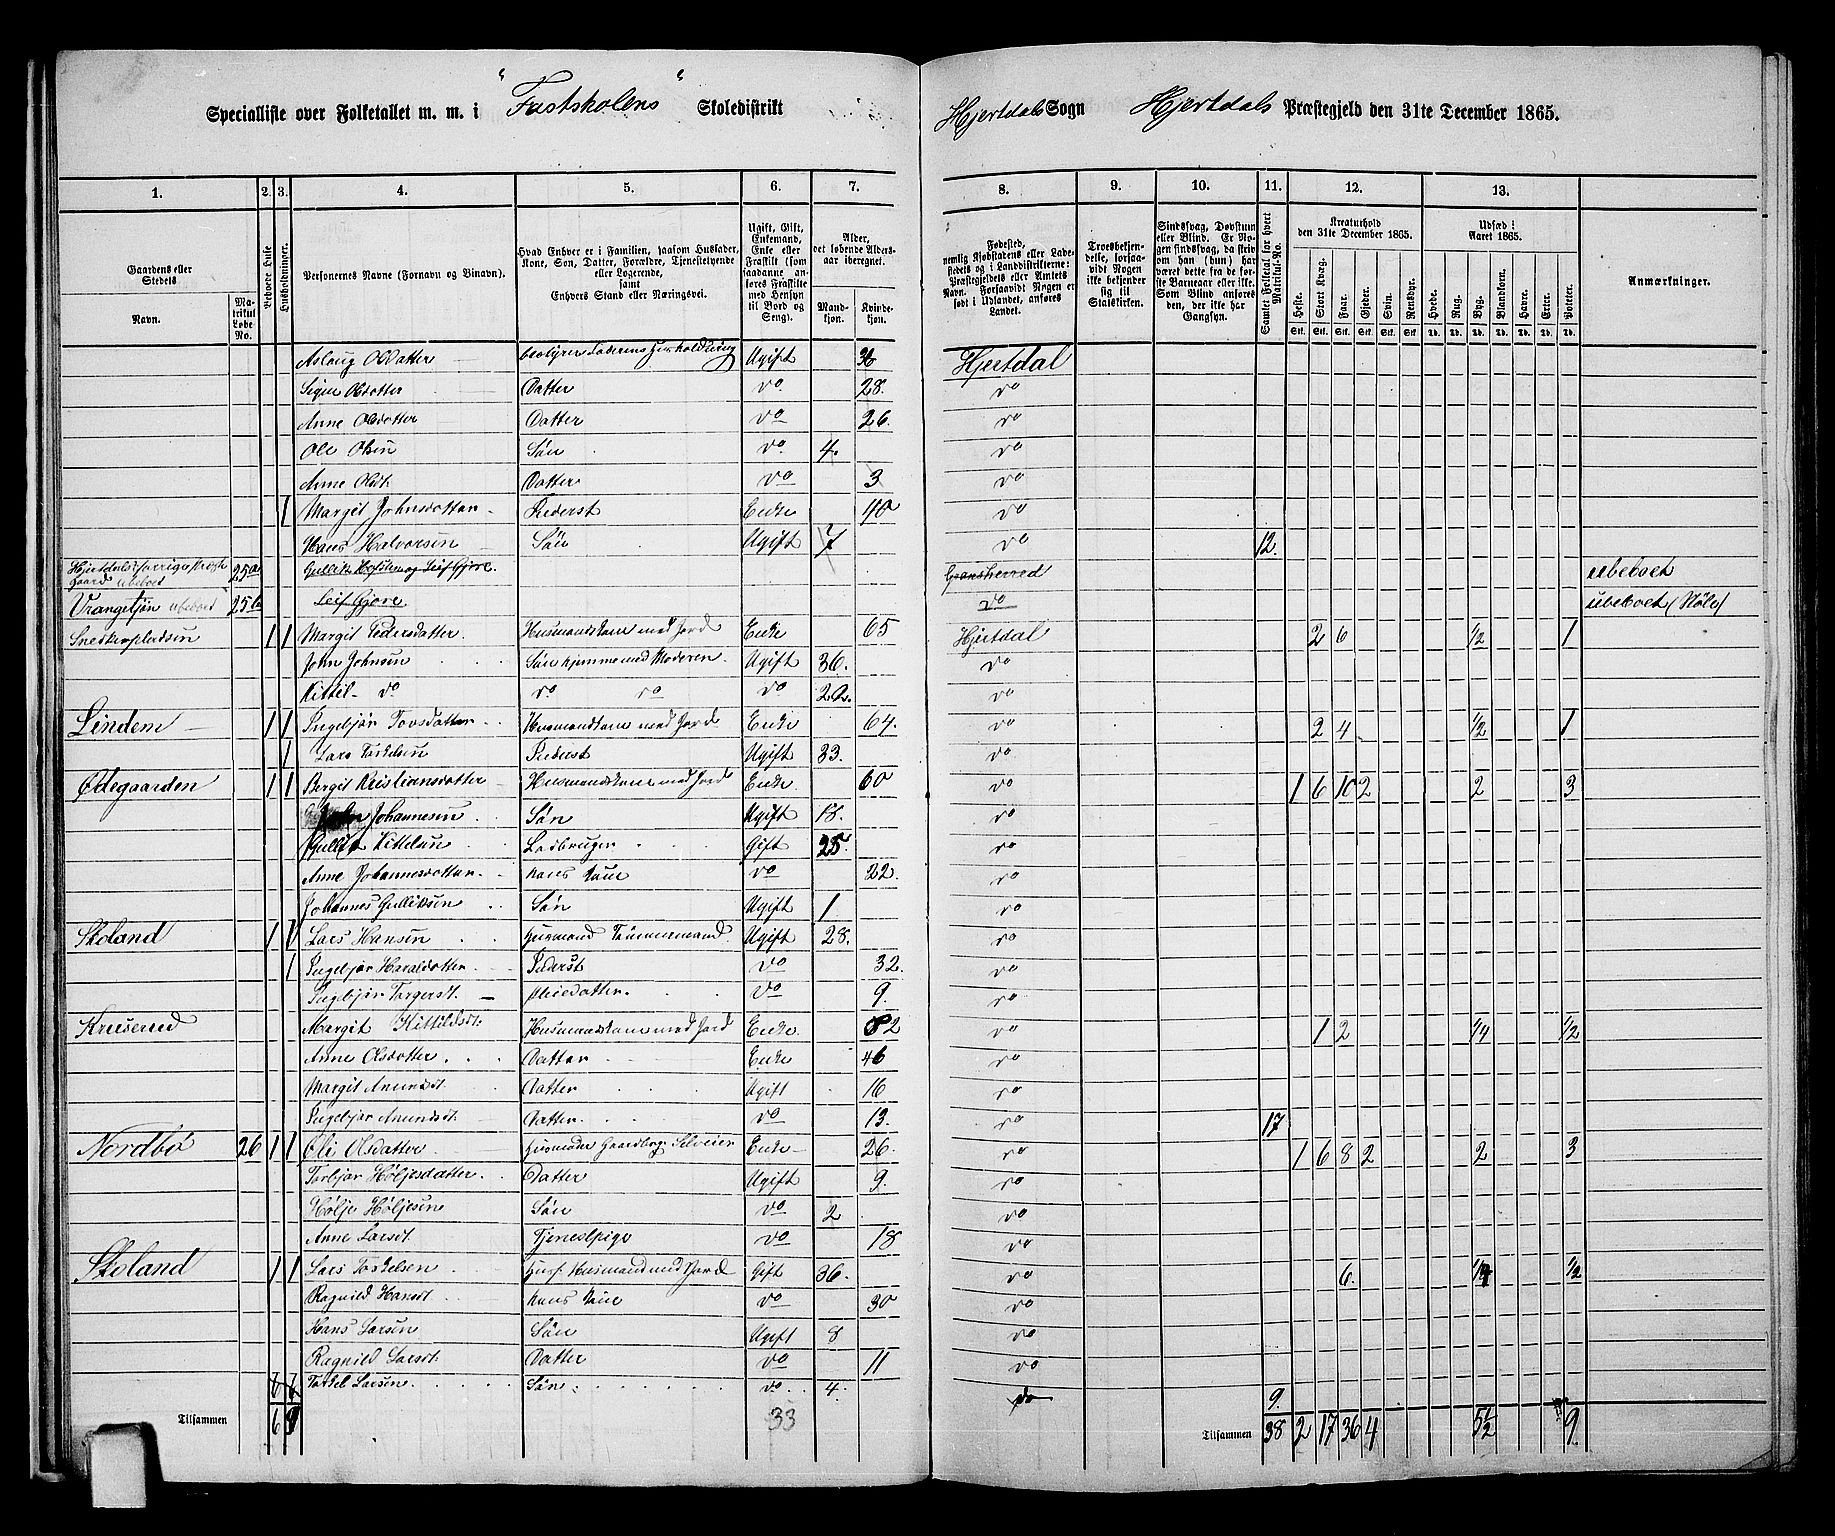 Specialliste over Folketallet m. m. i "Fastskolens" Skoledistrikt Hjertdals Sogn Hjertdals Præstegjeld den 31te December 1865.
1. 2. 3. 4. 5. 6. 7. 8. 9. 10. 11. 12. 13.
Gaardens eller Stedets
Navn.
Matrikul Løbe No.
Beboede Huse
Husholdninger.
Personernes Navne (Fornavn og Tilnavn).
Hvad Enhver er i Familien, saasom Husfader, Kone, Søn, Datter, Forældre, Tjenestetyende eller Logerende, samt Enhvers Stand eller Næringsvei.
Ugift, Gift, Enkemand, Enke eller Fraskilt (som saadanne anføres Fraskilte med Hensyn til Bord og Seng).
Alder, det løbende Aldersaar iberegnet.
Mandkjøn. Kvindekjøn.
Fødested, nemlig Kjøbstadens eller Ladestedets og i Landdistrikterne: Præstegjeldets eller Amtets Navn. Forsaavidt Nogen er født i Udlandet, anføres Landet.
Troesbekjendelse, forsaavidt Nogen ikke bekjender sig til Statskirken.
Sindssvag, Døvstum eller Blind. Er Nogen sindssvag, da skriv om han (hun) har været dette fra de første Barneaar eller ikke. Som Blind anføres den, der ikke har Gangsyn.
Samlet Folketal for hvert Matrikul-No.
Kreaturhold den 31te December 1865.
Heste. Stort Kvæg. Faar. Gjeder. Svin. Rensdyr.
Udsæd i Aaret 1865.
Hvede. Rug. Byg. Blandkorn. Havre. Erter. Poteter.
Anmærkninger.
Aslaug Olsdatter Ugift 30 Hjertdal
Signe Olsdatter Datter do 28. do
Anne Olsdatter Datter do 26. do
Ole Olsen Søn do 4. do
Anne Olsdt. Datter do 3 do
1 Margit Johnsdatter Inderst Enke 40 do
Hans Halvorsen Søn Ugift 7 do 12.
ubeboet 25a Gransherred ubeboet
Vrangetjøn ubeboet 25b Leif Gjøre do ubeboet
Snekkerpladsen 1 1 Margit Pedersdatter. Husmandskone med Jord Enke 65 Hjertdal 2 6 1/2 1
John Johnsen Søn hjemme med Moderen Ugift 36. do
Kittil do do do do do
Lindem 1 1 Ingebjør Tovsdatter Husmandskone med Jord Enke 64. do 2 4 1/2 1
1 Lars Torkelsen Inderst Ugift 33. do
Ødegaarden 1 1 Bergit Kristiansdatter Husmandskone med Jord Enke 60 do 1 6 10 2 2 3
John Johannesen Søn Ugift 18. do
Gullik Kittelsen Gift 25. do
Anne Johannesdatter hans Kone do 22. do
Johannes Gulliksen Søn Ugift 1 do
Skoland 1 1 Lars Hansen Husmand Tømmermand Ugift 28. do
1 Ingebjør Haraldsdatter Inderst do 32. do
Ingebjør Torgersdt. Pleiedatter. do 9. do
Kruserud Margit Kittilsdt. Husmandskone med Jord Enke 82 do 1 2 1/4 1/2
Anne Olsdatter Datter Enke 46 do
Margit Amundsdt. Datter Ugift 16 do
Ingebjør Amundsdt. Datter do 13. do 17
Nordbø 26 1 1 Oli Olsdatter Husmoder Gaardbrug Selveier Enke 26. do 1 6 8 2 2 3
Torbjør Høljesdatter Datter Ugift 9. do
Hølje Høljesen Søn do 2 do
Anne Larsdt. Tjenestpige do 18 do
Skoland 1 1 Lars Torkelsen Husf. Husmand med Jord Gift 36. do 6. 1/4 1/2
Ragnild Hansdt. hans Kone do 30 do
Hans Larsen Søn Ugift 8 do
Ragnild Larsdt. Datter do 11 do
Torkel Larsen Søn do 4. do 9.
Tilsammen 6 9 33 Tilsammen 38 2 17 36 4 5 1/2 9.